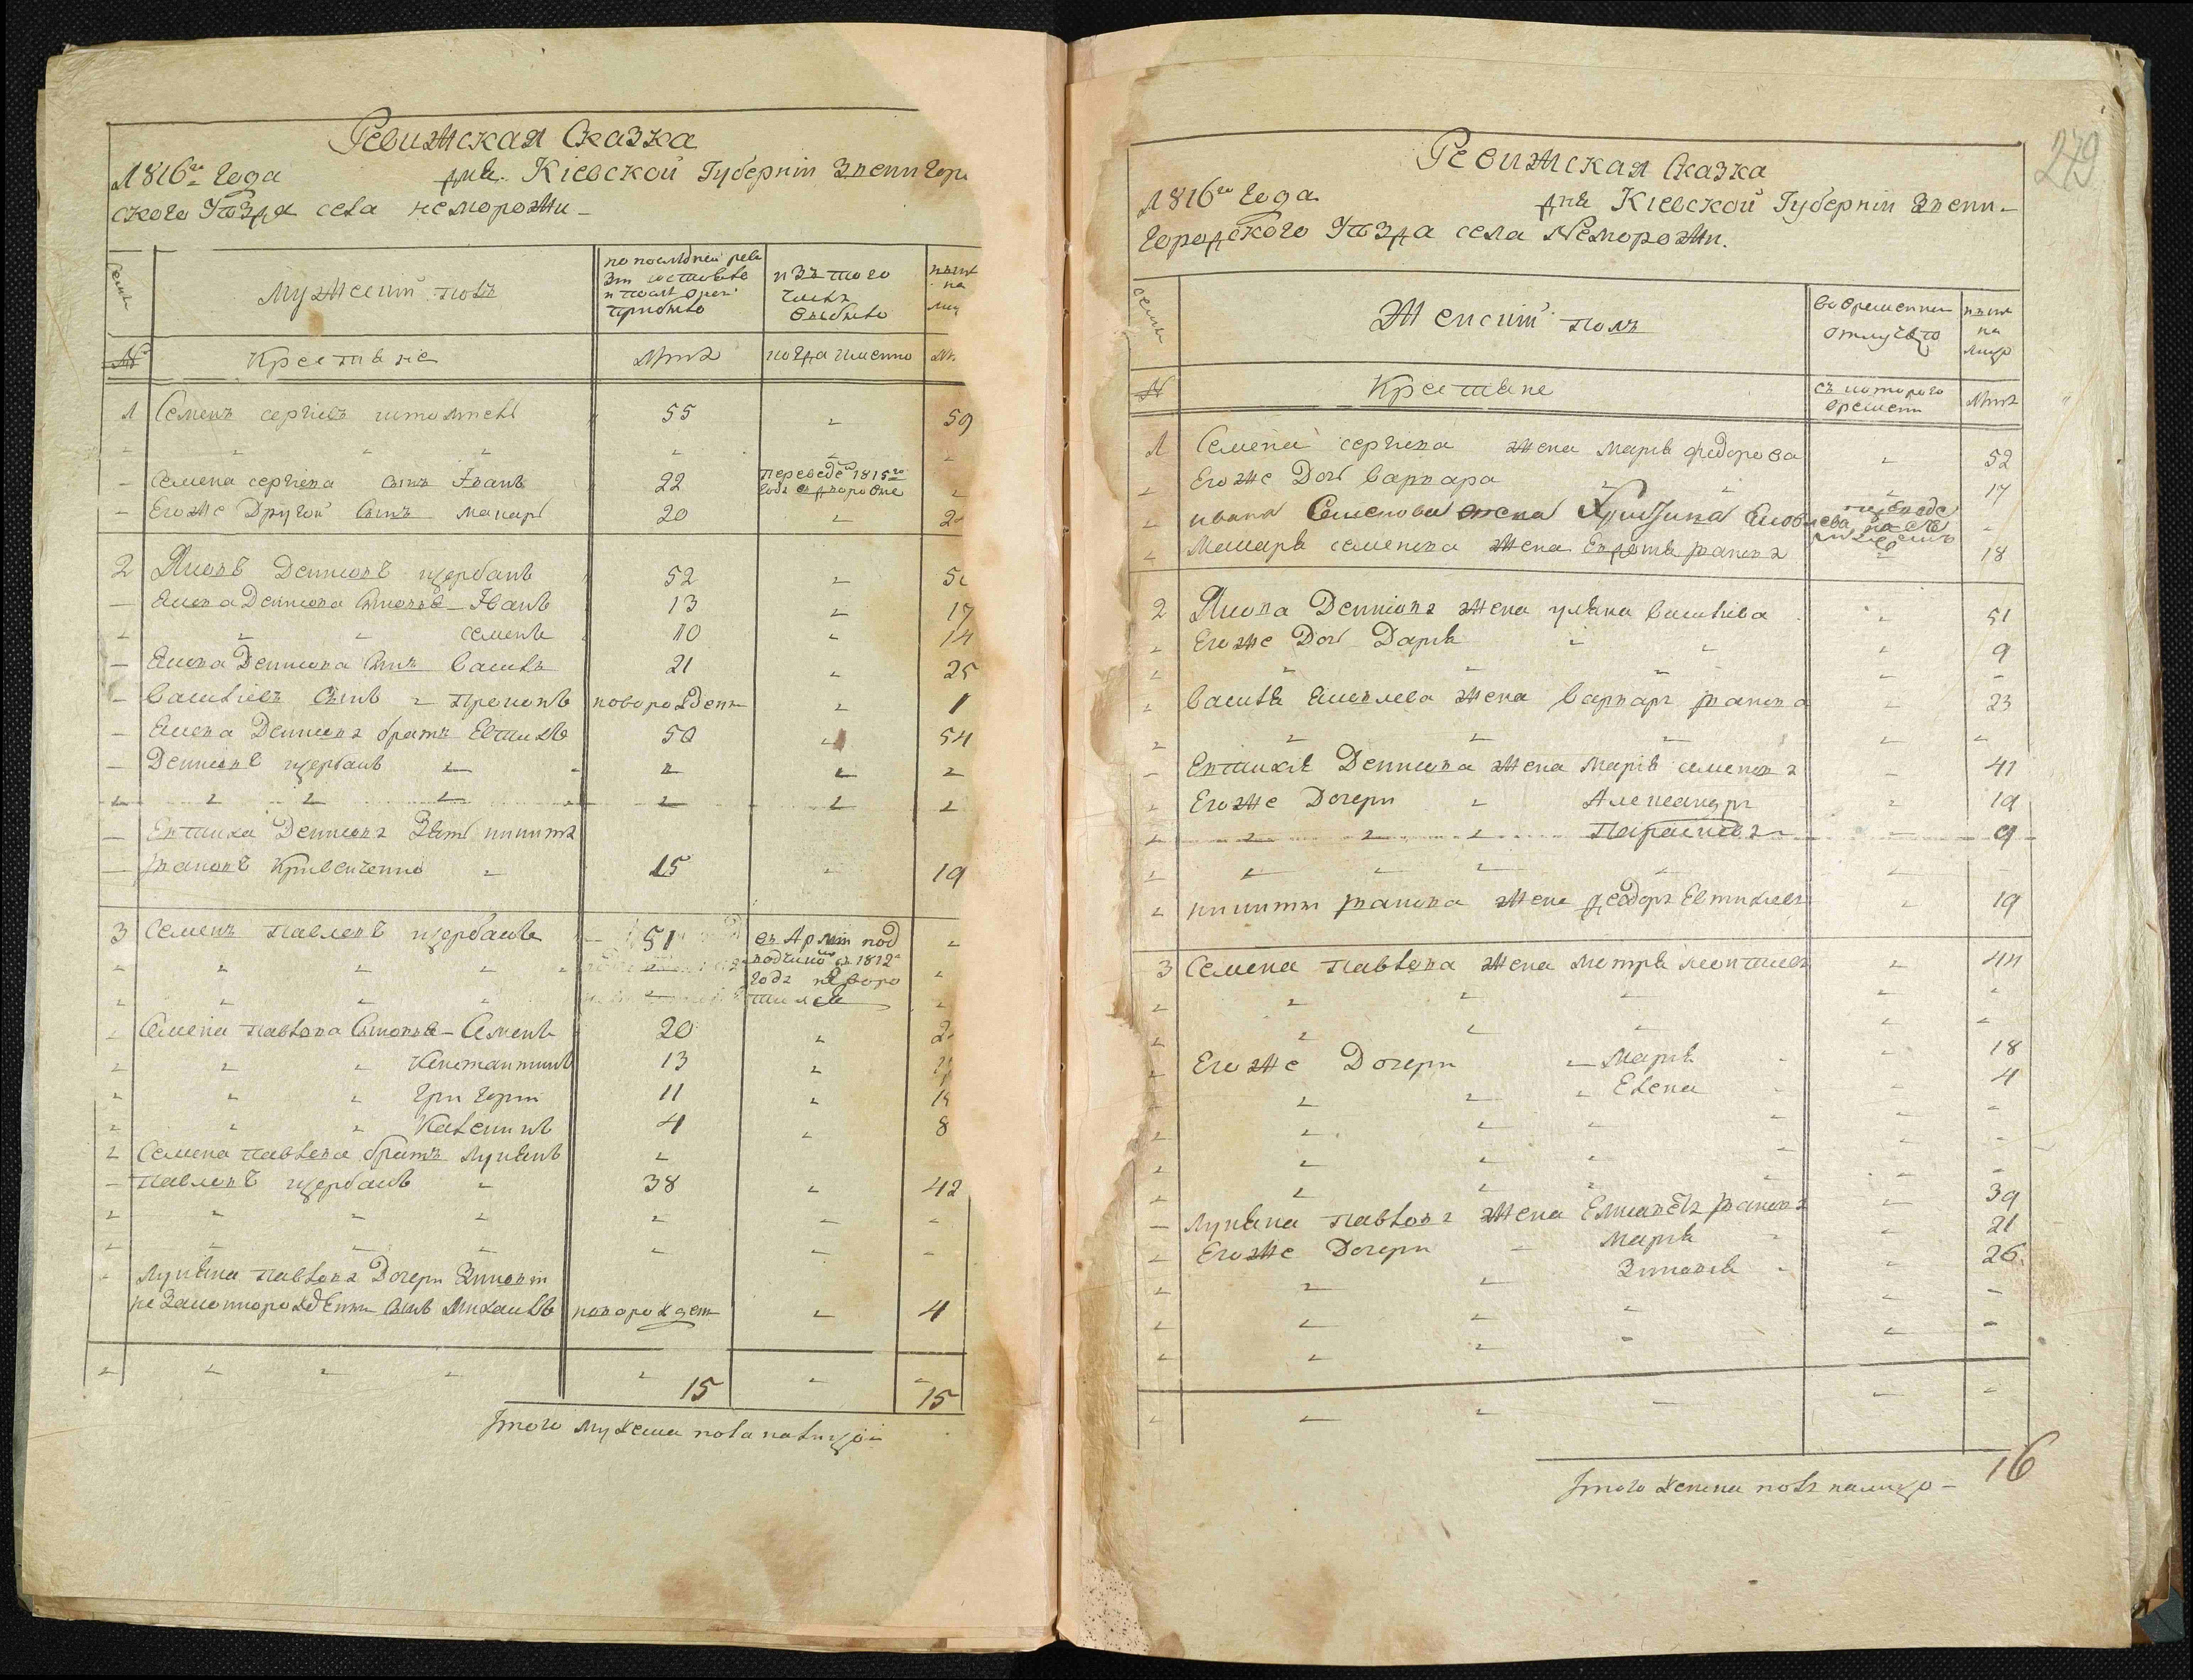 Ревижская Сказка
1816го Года дня Кіевской Губерніи Звенигоро
ского Уѣзда села неморожи
семьи
Мужескій полъ
по последней реви
зіи состояло
и после оной
прибыло
изъ того
числа
выбыло
ныне
на
лиц
№
Крестяне
Лета
когда именно
Ле
1 Семенъ сергіевъ 55 59
Семена сергіева сынъ Іванъ 22 переведе 1815го
Егоже Другой Сынъ макаръ 20
2 Яковъ Денисовъ щербакъ 52
Якова Денисова Сыновя Іванъ 13 17
семенъ 10 14
Якова Денисова Сынъ Василь 21 25
Васильевъ Сынъ Прокопъ новорожденъ 1
Якова Денисова братъ Евтихъ 50 54
Денисовъ щербакъ
Евтиха Денисова Зять никита
Кривенченко 15 19
3 Семенъ Павловъ щербакъ 51 въ Арміи под
водчикомъ въ 1812го
года не воро
тился
Семена павлова Сыновя Семенъ 20
Константинъ 13
Григорій 11
Каленикъ 4 8
Семена павлова братъ Лукянъ
Павловъ щербакъ 38 42
Лукяна павлова Дочери Зиновіи
незаконнорожденни Сынъ Михаилъ новорожденъ 4
15 15
Ітого мужеска пола налицо
279
Ревижская Сказка
1816го Года дня Кіевской Губерніи Звени-
Городского Уѣзда села Неморожи.
семьи
Женский полъ
во временной
отлучке
ныне
на
лицо
№
Крестяне
съ которого
времени
Лета
1 Семена сергіева жена Марія федорова 52
Егоже Доч Варвара 17
ивана Семенова жена Христина Яковлева
Макара семенова жена 18
2 Якова Денисова жена уляна Василіева 51
Егоже Доч Дарія 9
Василя Яковлева жена Варвара 23
Евтихія Денисова жена Марія семенова 41
Егоже Дочери Александра 19
Параскева 9
никиты жена феодора Евтихіева 19
3 Семена павлова жена мотря леонтиева 44
Егоже Дочери Марія 18
Елена 4
Лукяна павлова жена 39
Егоже Дочери Марія 21
Зиновія 26
16
Ітого женска пола налицо